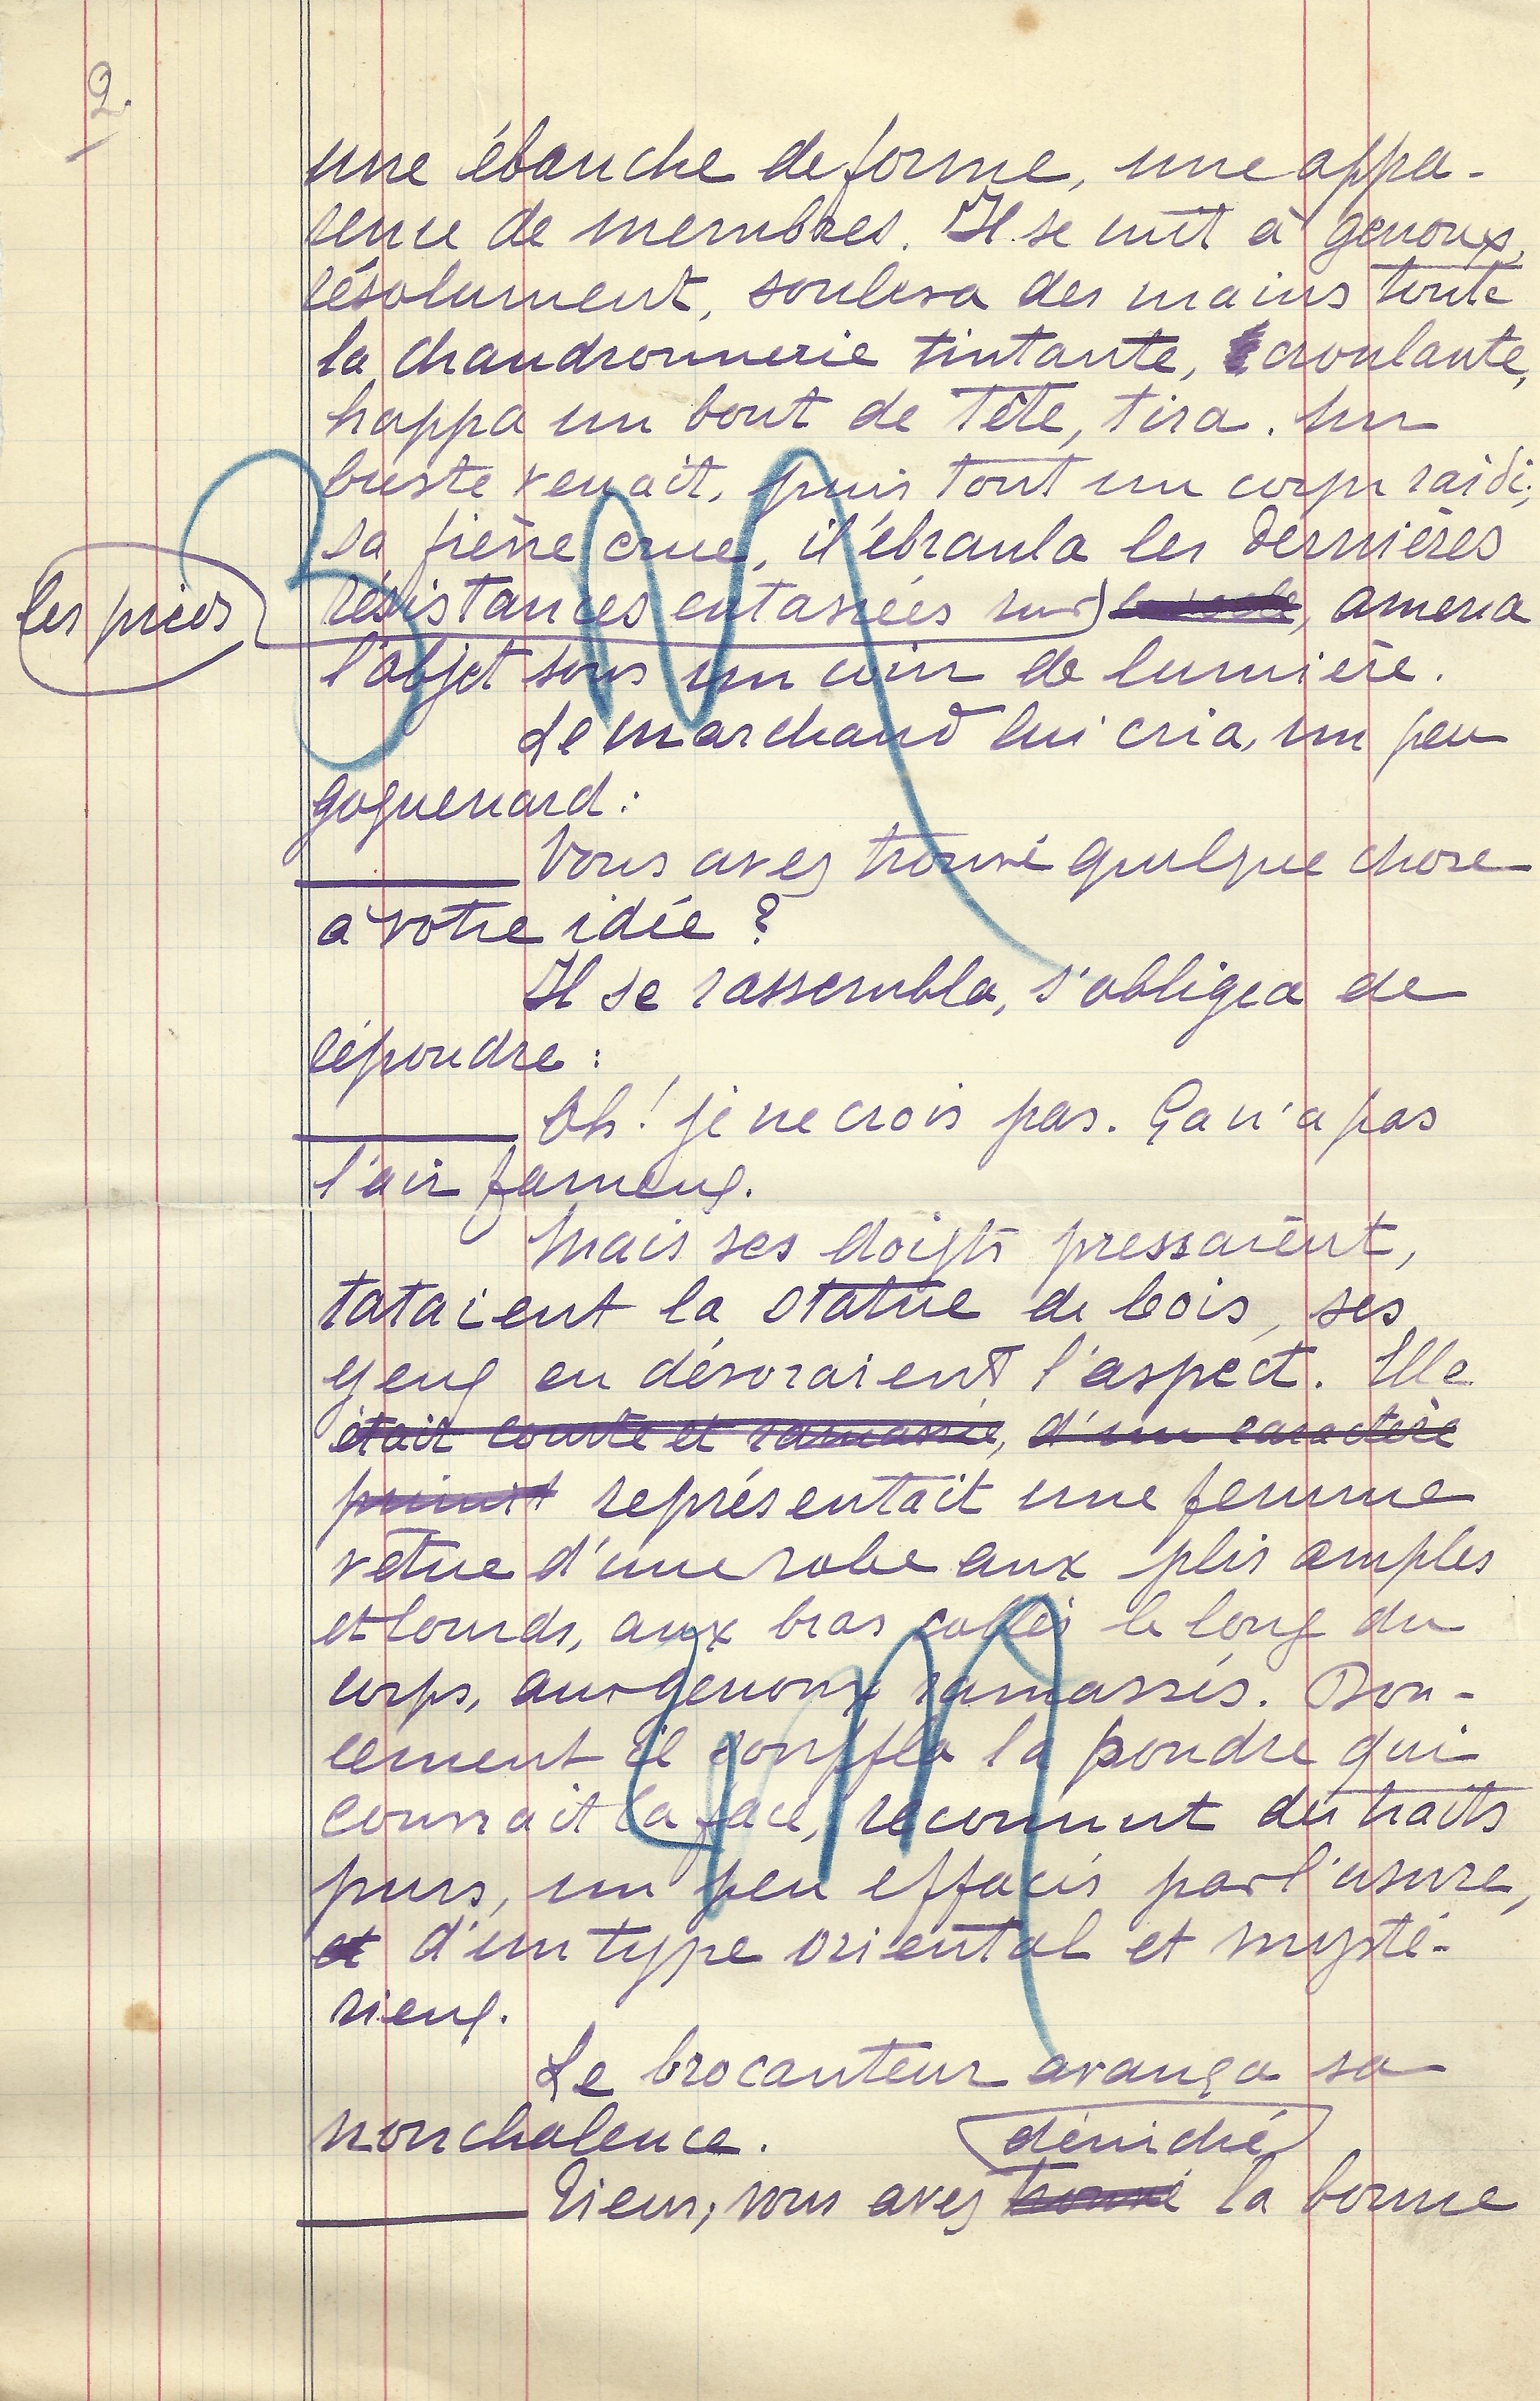 2.
une ébauche de forme, une appa-
rence de membres. Il se mit à genoux,
résolument, souleva des mains toute
la chaudronnerie tintante, croulante,
happa un bout de tête, tira. Un
buste venait, puis tout un corps raidi;
sa fièvre crue, il ébranla les dernières
les pieds
résistances entassées sur, amena
l'objet sous un coin de lumière.
Le marchand lui cria, un peu
goguenard :
Vous avez trouvé quelque chose
à votre idée ?
Il se rassembla, s'obligea de
répondre :
Oh! je ne crois pas. Ça n'a pas
l'air fameux.
Mais ses doigts pressaient,
tataient la statue de bois, ses
yeux en dévoraient l'aspect. Elle
était courte et ramassée, d'un caractère
primit représentait une femme
vêtue d'une robe aux plis amples
et lourds, aux bras collés le long du
corps, aux genoux ramassés. Dou-
cement il souffla la poudre qui
couvrait la face, reconnut des traits
purs, un peu effacés par l'usure,
et d'un type oriental et mysté-
rieux.
Le brocanteur avança sa
nonchalence.
déniché
Tiens, vous avez trouvé la bonne
3 M
4 M